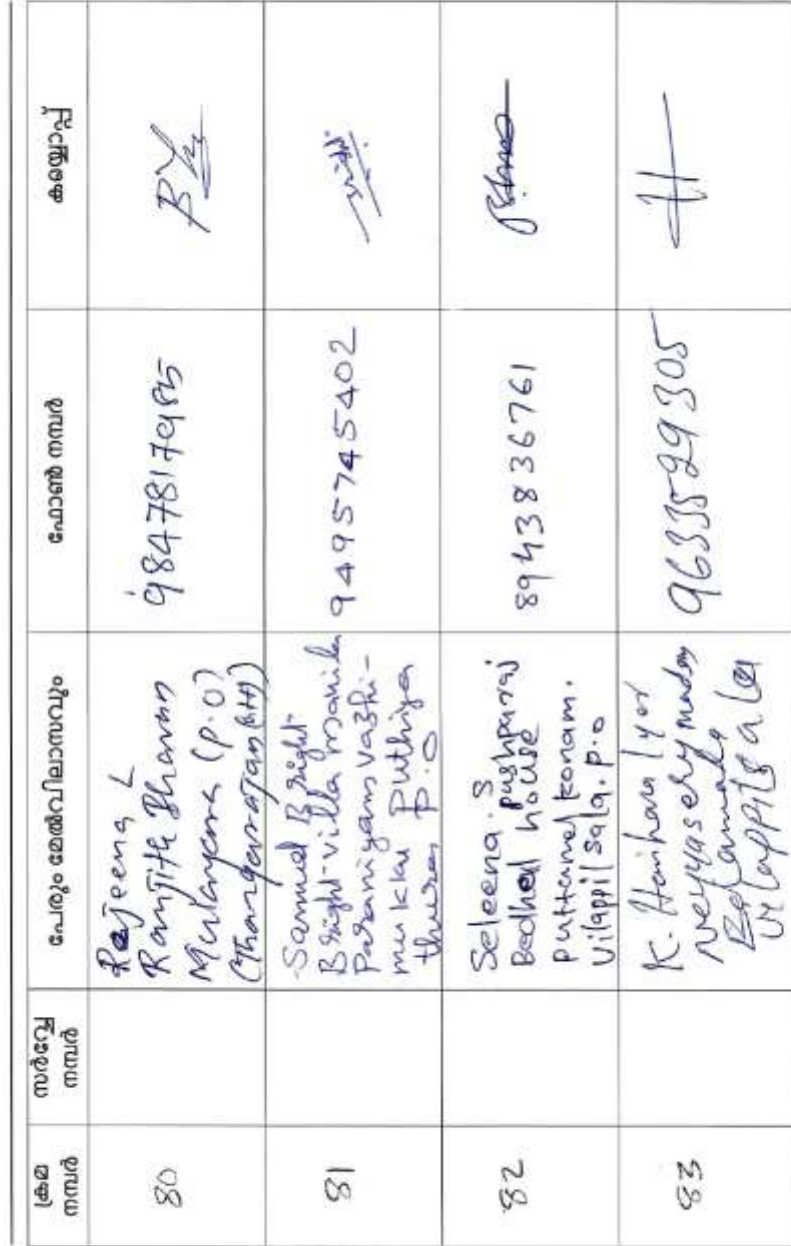 ക്രമ
നമ്പർ
സർവ്വേ
നമ്പർ
പേരും മേൽവിലാസവും
ഫോൺ നമ്പർ
കയ്യൊപ്പ്
80
Rejeena L
Ranjith Bhavan
Mulayara (P.O)
9847817985
81
Samuel Bright
Bright villa manila
Paraniyam vazhi-
mukku Puthiya
thura P.O
9495745402
82
Seleena. S
pushparaj
Bedhel house
puttumel konam.
Vilappil sala. P.O
8943836761
83
K. Harihara Iyer
Vilappilsala
9633529305